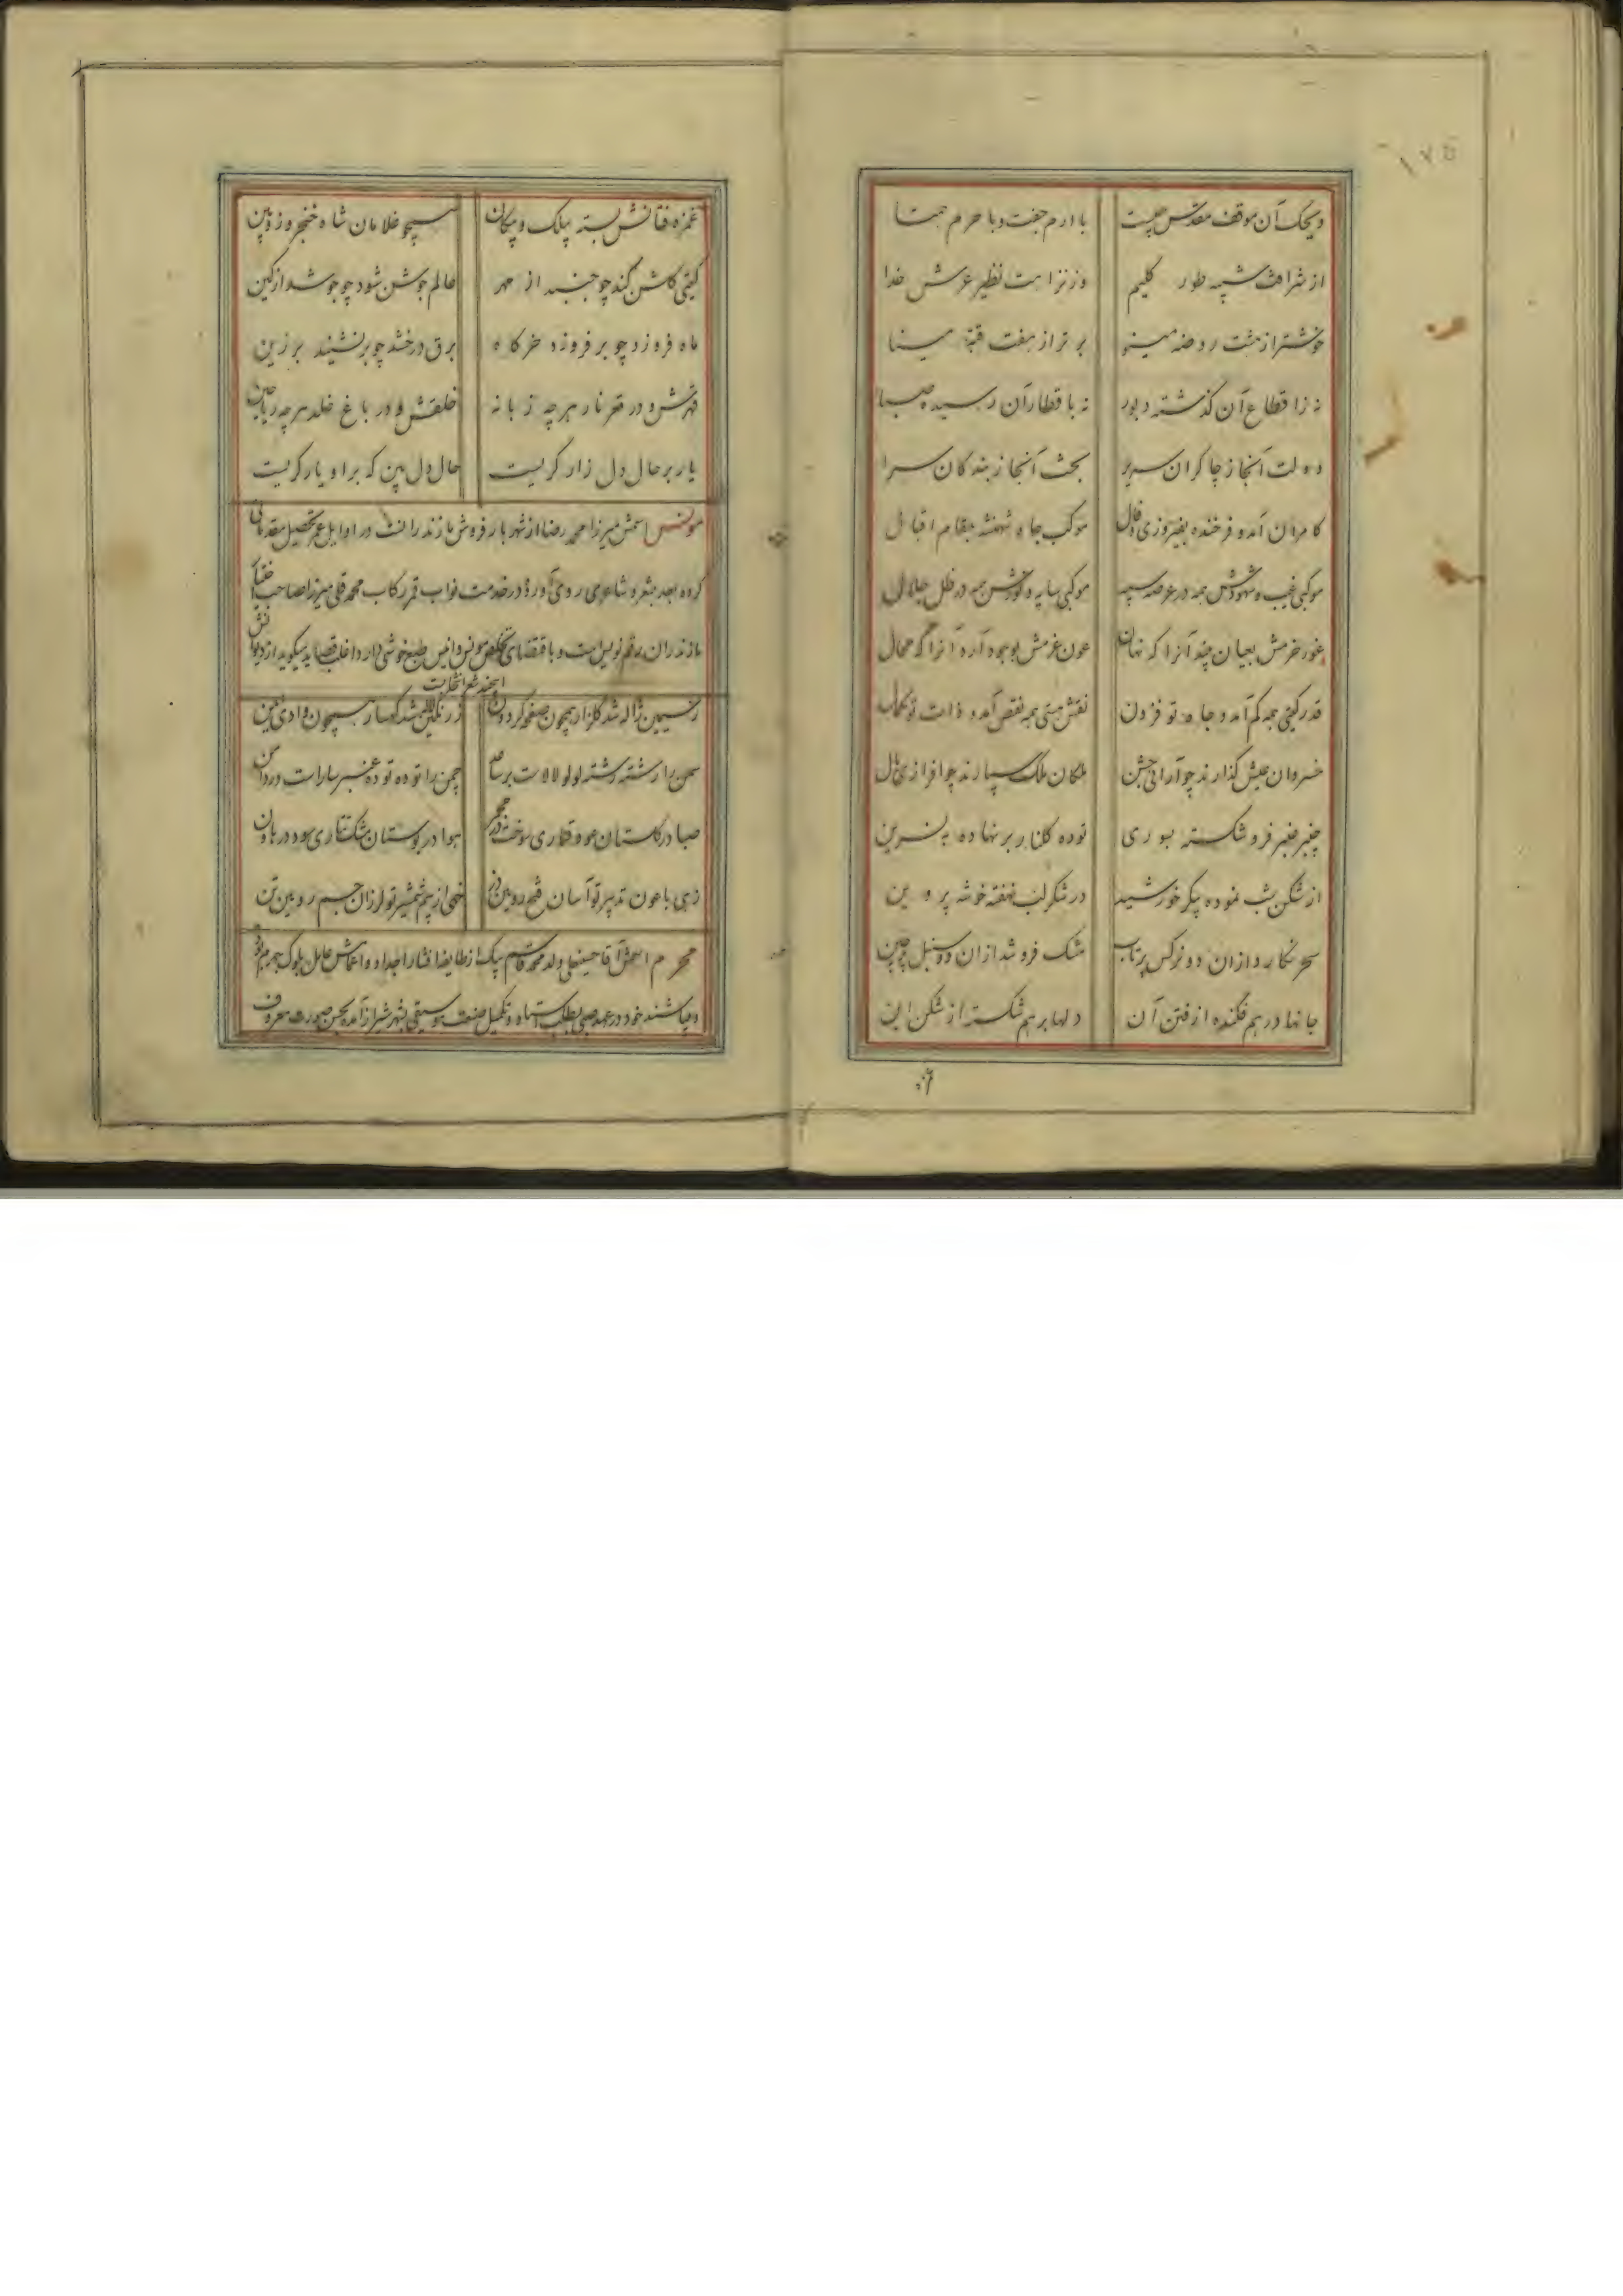 ویحک آن موقف مقدس چیست با ارم جفت و با حرم همتا
از شرافت شبیه طور کلیم وز نزاهت نظیر عرش خدا
خوشتر از هشت روضه مینو برتر از هفت قبه مینا
نه ز اقطاع آن گذشته دبور نه با قطار آن رسیده صبا
دولت آنجا ز چاکران سریر بخت آنجا ز بندگان سرا
کامران آمد و فرخنده بفیروزی و فال موکب جاه شهنشه بمقام اقبال
موکبی غیب و شهودش همه در عرصه سپه موکبی سایه و نورش همه در ظل جلال
غور حزمش بعیان بیند آنرا که نهان عون عزمش بوجود آرد آنرا که محال
قدر گیتی همه کم آمد و جاه تو فزون نقش هستی همه نقص آمد و ذات تو کمال
خسروان عیش گذارند چو آرائی جشن ملکان ملک سپارند چو افرازی یال
چنبر عنبر فرو شکسته بسوری توده گلنار بر نهاده به نسرین
از شکن شب نموده پیکر خورشید در شکر لب نهفته خوشه پروین
سحر نگارد از آن دو نرگس پرتاب مشک فروشد از آن دو سنبل پرچین
جانها درهم فکنده از فتن آن دلها برهم شکسته از شکن این
غمزه فتانش بسته بیلک و پیکان همچو غلامان شاه خنجر و زوبین
گیتی گلشن کند چو جنبد از مهر عالم جوشن شود چو جوشد از کین
ماه فروزد چو بر فروزد خرگاه برق درخشد چو برنشیند بر زین
قهرش و در قعر نار هرچه زبانه خلقش و در باغ خلد هرچه ریاحین
یار بر حال دل زار گریست حال دل بین که بر او یار گریست
مونس اسمش میرزا محمد رضا از شهر بارفروش مازندرانست در اوایل عمر تحصیل مقدماتی
کرده بعد بشعر و شاعری روی آورده در خدمت نواب قمر رکاب محمد قلی میرزا صاحب اختیار
مازندران رقم نویس است و باقتضای تخلص مونس و انیس طبع خوشی دارد اغلب قصاید میگوید از دیوانش
اینچند شعر انتخابست
ز سیمین ژاله شد گلزار همچون صفحه گردون ز رنگین لاله شد کهسار همچون وادی ایمن
سمن را رشته رشته لولو لالاست بر ساعد چمن را توده توده عنبر ساراست در دامن
صبا در گلستان عود قماری سوخت در مجمر هوا در بوستان مشک تتاری سود در هاون
زهی با عون تدبیر تو آسان فتح رویین دژ خهی از بیم شمشیر تو لرزان جسم رویین تن
محرم اسمش آقا حسینعلی ولد محمد قاسم بیک از طایفه افشار اجداد و اعمامش عامل بلوک
میباشند خود در عهد صبی بطلب استاد و تکمیل صنعت موسیقی بشهر شیراز آمده بحسن صورت معروف